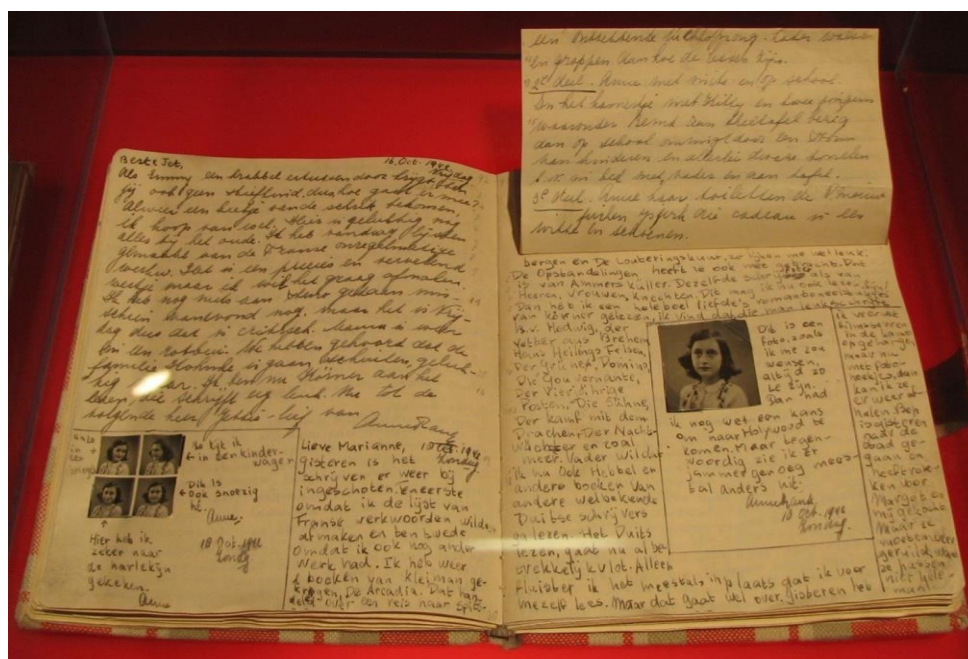 Beste Jet,
16. Oct. 1942
Vrijdag
Als Emmy een krabbel ertussendoor krijgt ben
jij ook geen stiefkind, dus hoe gaat er mee?
Alweer een beetje van de schrik bekomen,
ik hoop van wel. Hier is gelukkig nog
alles bij het oude. Ik heb vandaag lijsten
gemaakt van de Franse onregelmatige
werkw. Dat is een precies en vervelend
werkje maar ik wil het graag afmaken.
Ik heb nog niets aan steno gedaan mis-
schien vanavond nog, maar het is Vrij-
dag dus dat is critisch. Mama is weer
We hebben gehoord dat de
familie is gaan
Ik ben nu Körner aan het
lezen, die schrijft erg leuk. Nu tot de
volgende keer
van
Anne Frank
Zo zit ik
in den kinder-
wagen
Dit is
ook snoezig
hè.
Anne.
Hier heb ik
zeker naar
de harlekijn
gekeken.
Anne
18 Oct. 1942
Zondag
Lieve Marianne,
Zondag
gisteren is het
schrijven er weer bij
ingeschoten. Ten eerste
omdat ik de lijst van
Franse werkwoorden wilde
afmaken en ten twede
omdat ik ook nog ander
werk had. Ik heb weer
2 boeken van Kleiman ge-
kregen, De Arcadia. Dat han-
deld over een reis naar Spits-
2e deel. Anne met
op school.
In het kamertje met Hilly en twee jongens
waaronder
aan op school omringt door een
kinderen en allerlei
in bed met vader en aan tafel.
3e deel. Anne haar toiletten de
cadeau
en schoenen.
bergen en De Louteringskuur, zo lijken me wel leuk.
De Opstandelingen heeft ze ook mee gebracht. Dat
is van Ammers Küller. Dezelfde schrijfster als van
Heeren, Vrouwen, Knechten. Dit mag ik nu ook lezen fijn!
Dan heb ik een heleboel liefde's romantoneelstukjes
van Körner gelezen, ik vind dat die man leuk schrijft.
B.v. Hedwig, der
Vetter aus Bremen
Hans Heilings Felsen,
Der Grüner Domino,
Die Gouvernante,
Der Vierjährige
Posten, Die Sühne,
Der Kampf mit dem
Drachen, Der Nacht-
wächter en zoal
meer. Vader wil dat
ik nu ook Hebbel en
andere boeken van
andere welbekende
Duitse schrijvers
ga lezen. Het Duits
lezen, gaat nu al be-
trekkelijk vlot. Alleen
fluister ik het meestal, in plaats dat ik voor
mezelf lees. Maar dat gaat wel over. gisteren heb
Dit is een
foto, zoals
ik me zou
wensen,
altijd zo
te zijn.
Dan had
ik nog wel een kans
om naar Holywood te
komen. Maar tegen-
woordig zie ik er
jammer genoeg mees-
tal anders uit.
Anne Frank
18 Oct. 1942
Zondag
ik weer
filmsterren
in de kamer
opgehangen
maar nu
met foto-
hoekjes, dan
kan ik ze
er weer af-
halen. Bep
is gisteren
naar de
stad ge-
gaan en
heeft rok-
ken voor
Margot en
mij gekocht.
Maar ze
moeten weer
geruild, want
ze passen
niet hele-
maal